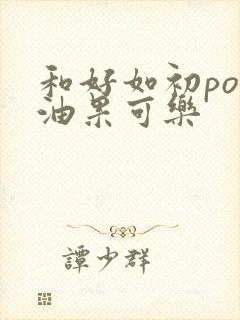 和好如初po
油果可樂
譚少群